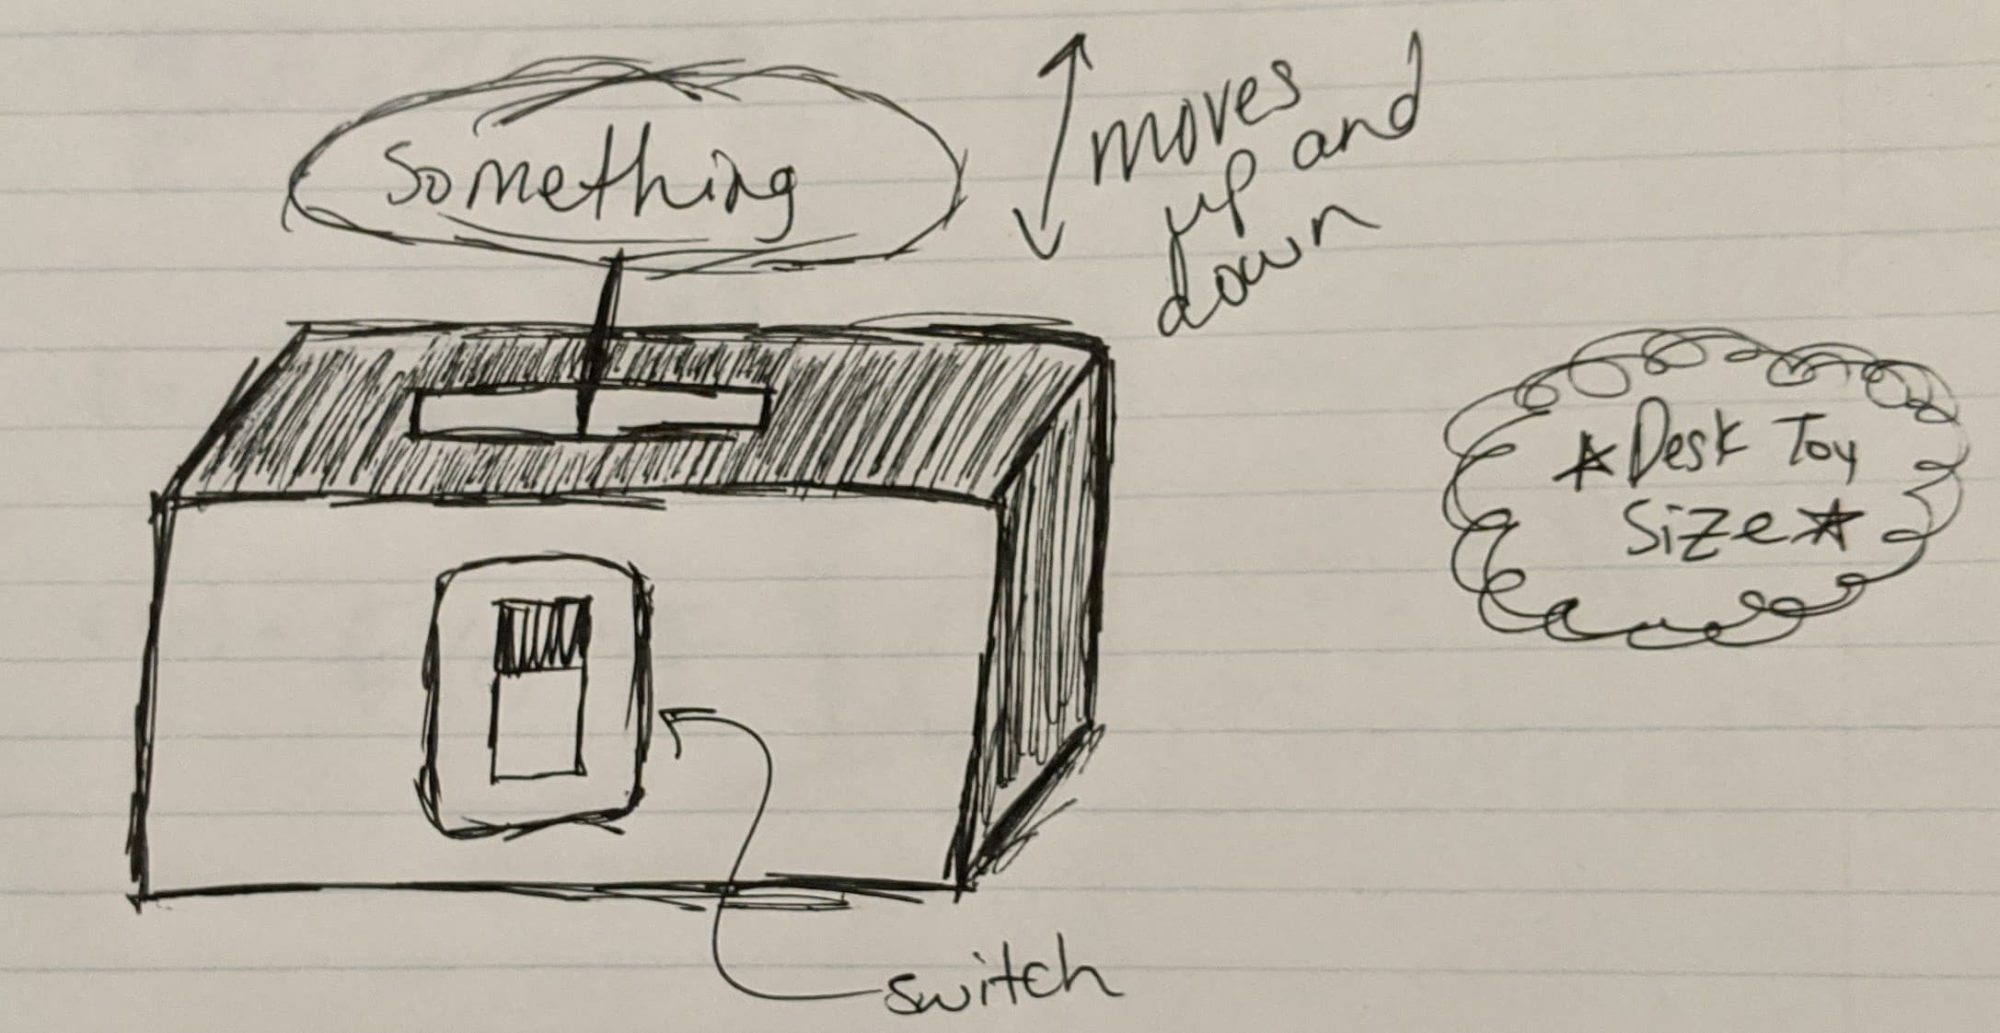 Something
moves
up and
down
☆Desk Toy
Size☆
switch